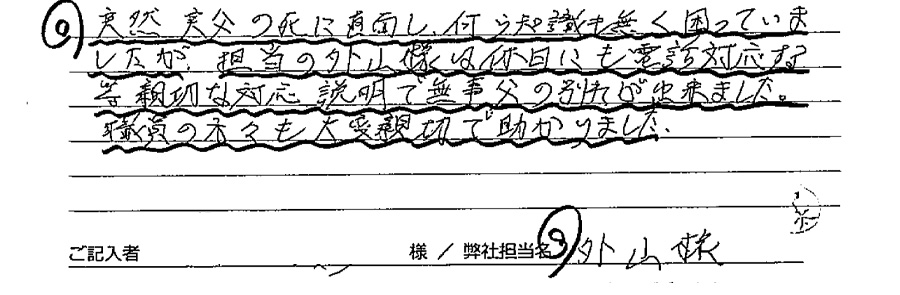 突然 実父の死に直面し、何ら知識も無く困っていま
したが、担当の外山様は休日にも電話対応する
等親切な対応 説明で無事父の別れが出来ました。
職員の方々も大変親切で助かりました。
ご記入者 様 / 弊社担当名 外山 様